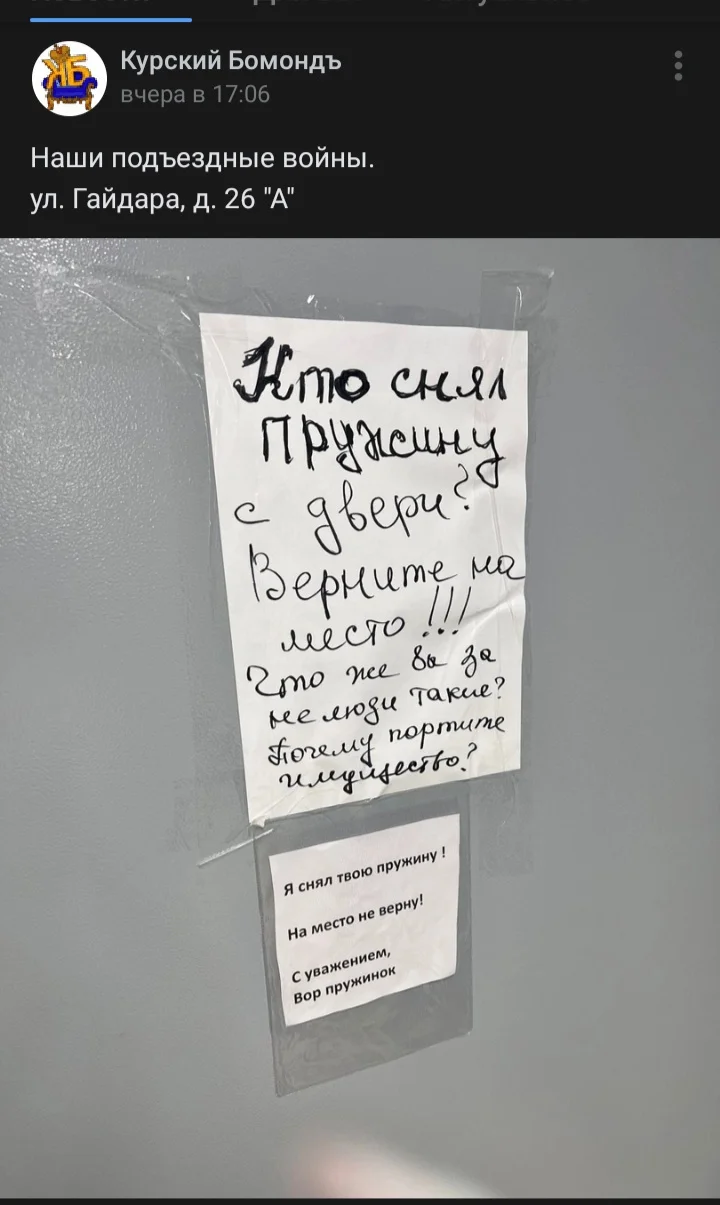 Курский Бомондъ
вчера в 17:06
Наши подъездные войны.
ул. Гайдара, д. 26 "А"
Кто снял
пружину
с двери?
Верните на
место!!!
Что же вы за
не люди такие?
Почему портите
имущество?
Я снял твою пружину !
На место не верну!
С уважением,
Вор пружинок